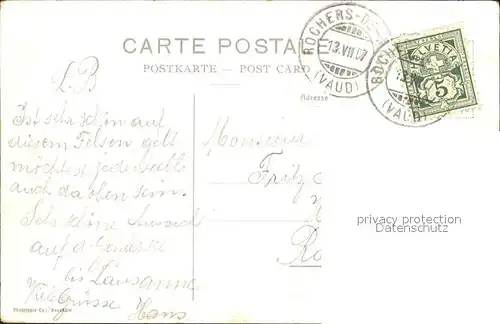 CARTE POSTALE
POSTKARTE - POST CARD
Adresse
ROCHERS-D
13.VII.07
(VAUD)
ROCH
(VAUD)
HELVETIA
5
L B
Ist sehr schön auf
diesem Felsen gelt
möchtest jedenfalls
auch da oben sein.
Sehr schöne Aussicht
auf d.
bis Lausanne
Viele Grüsse Hans
Monsieur
Fritz
privacy protection
Datenschutz
Phototypie Co., Neuchâtel